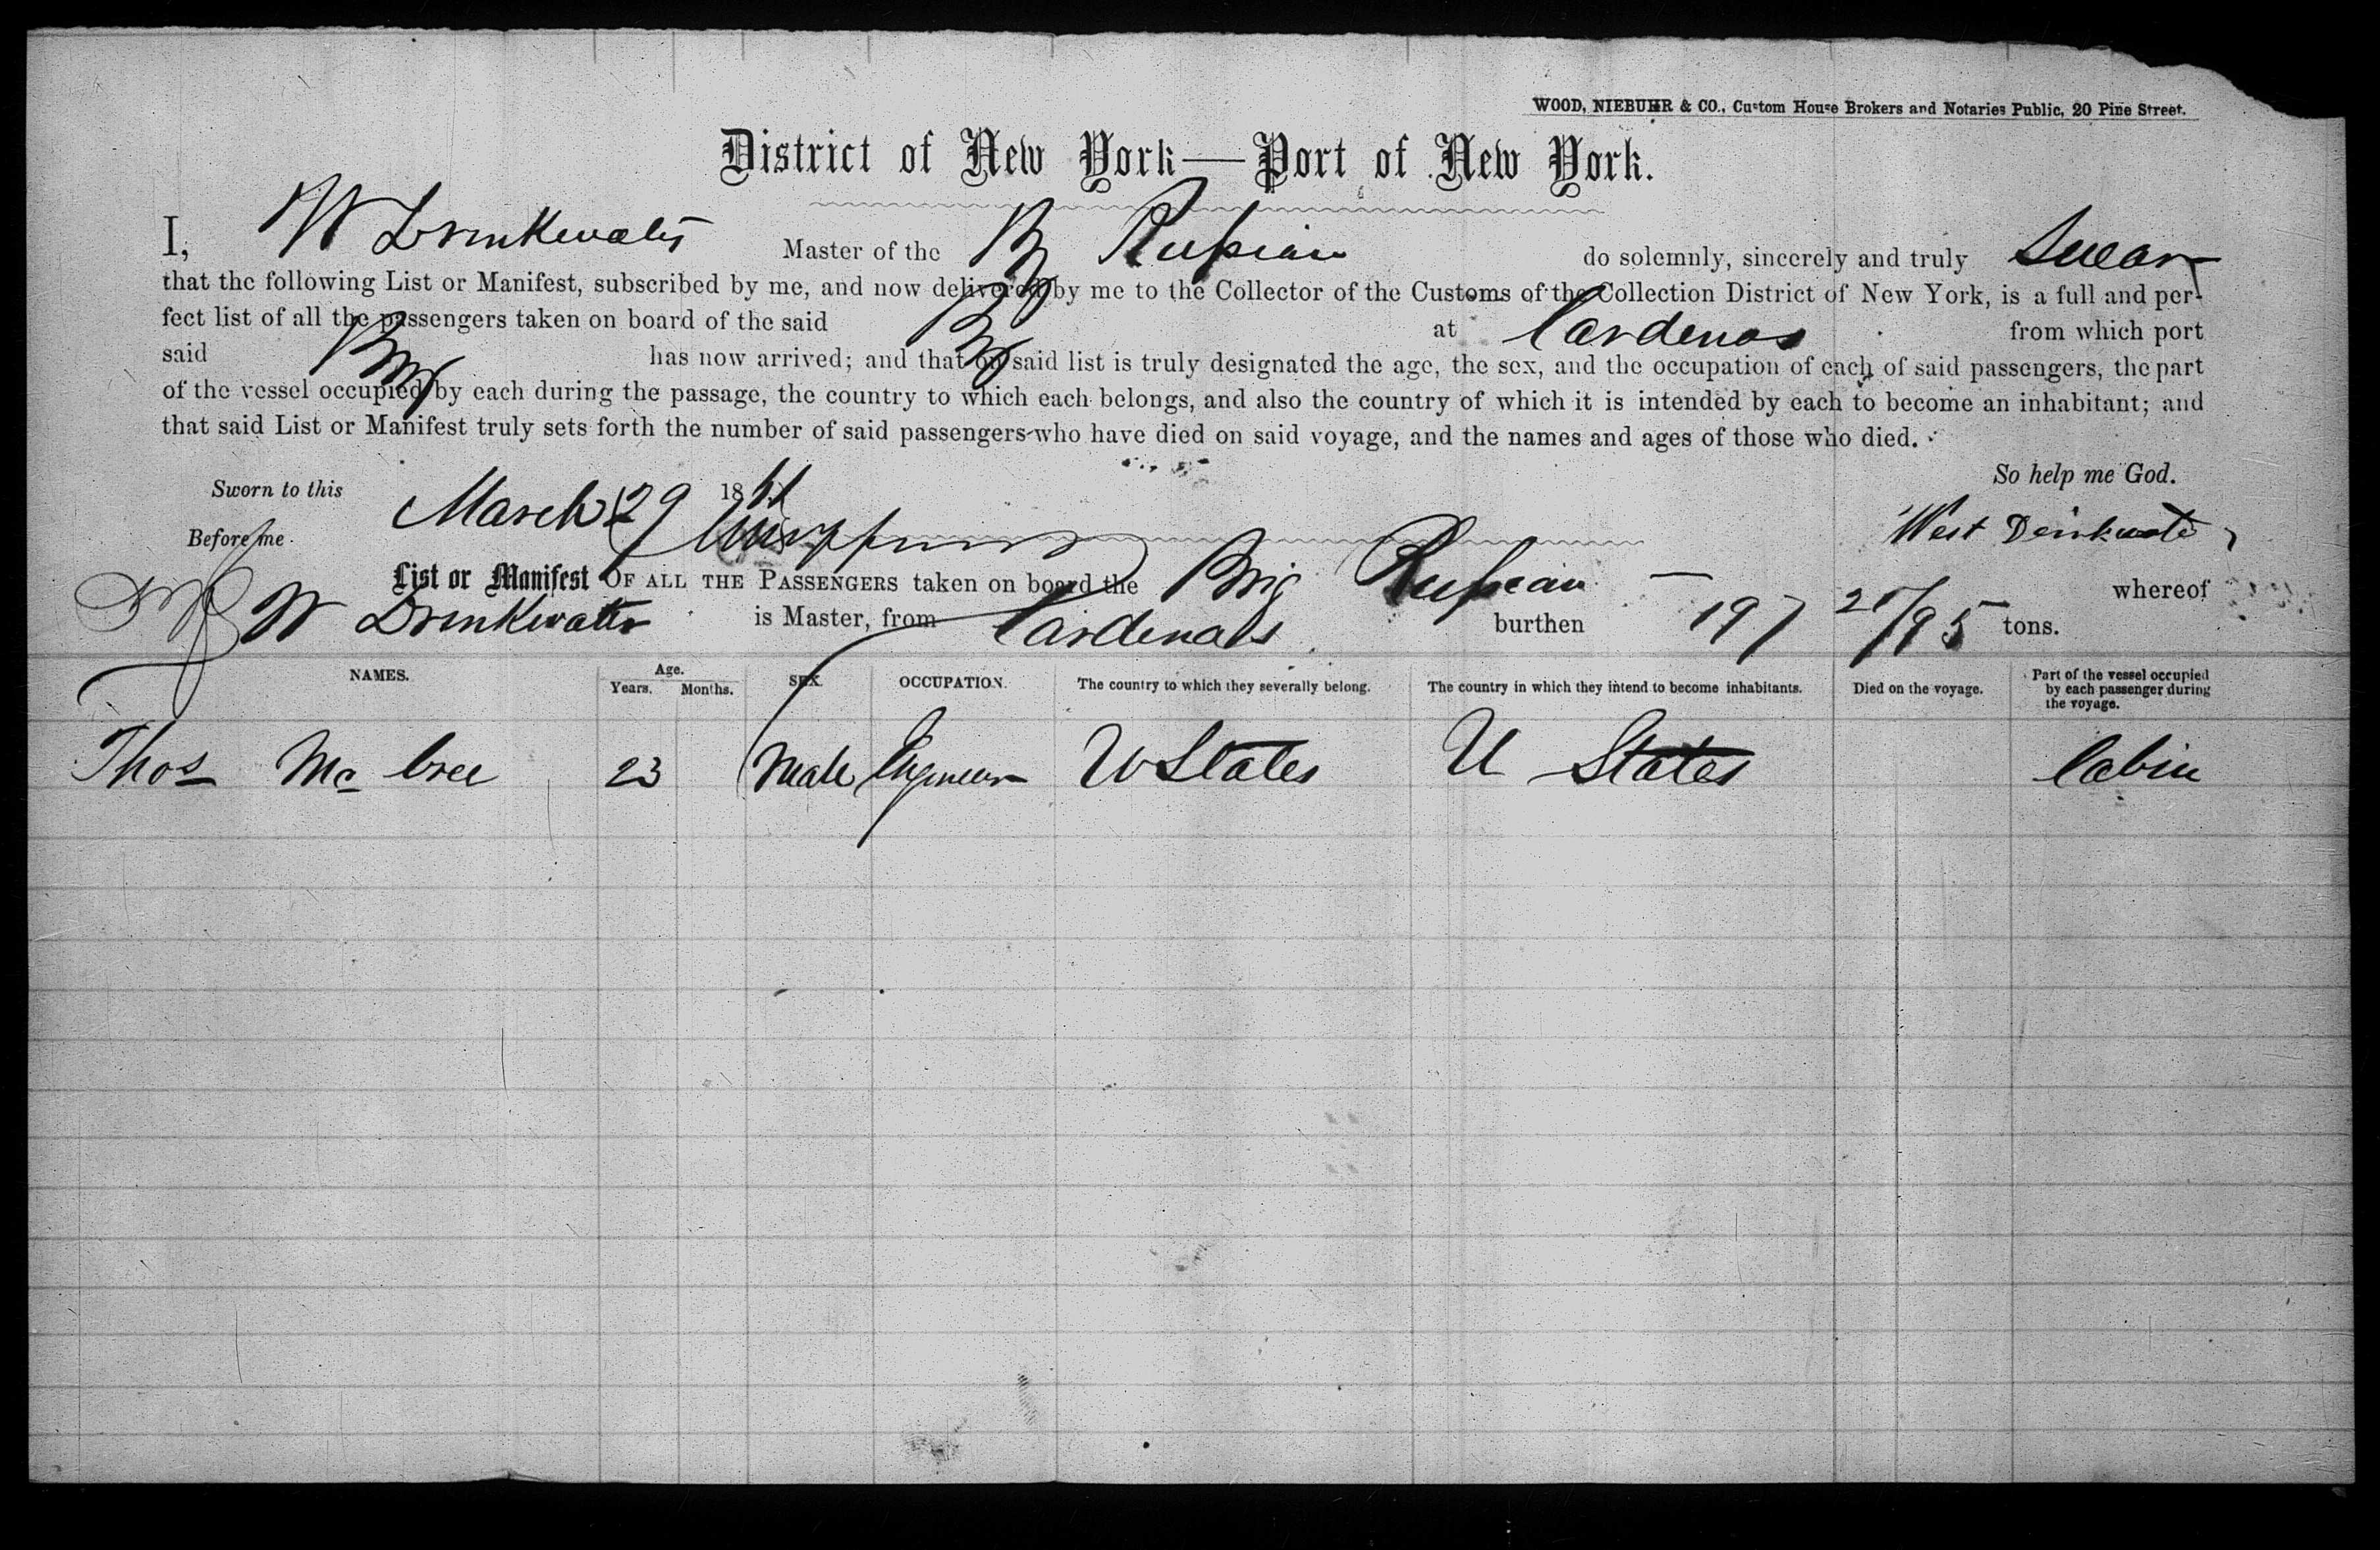 WOOD, NIEBUHR & CO., Custom House Brokers and Notaries Public, 20 Pine Street.
District of New York—Port of New York.
I, W Drinkwater Master of the Brig Russian do solemnly, sincerely and truly Swear
that the following List or Manifest, subscribed by me, and now delivered by me to the Collector of the Customs of the Collection District of New York, is a full and per-
fect list of all the passengers taken on board of the said Brig at Cardenas from which port
said Brig has now arrived; and that on said list is truly designated the age, the sex, and the occupation of each of said passengers, the part
of the vessel occupied by each during the passage, the country to which each belongs, and also the country of which it is intended by each to become an inhabitant; and
that said List or Manifest truly sets forth the number of said passengers who have died on said voyage, and the names and ages of those who died.
So help me God.
Sworn to this March 29 1861
Before me West Drinkwater
List or Manifest OF ALL THE PASSENGERS taken on board the Brig Russian whereof
W Drinkwater is Master, from Cardenas burthen 197 /95 tons.
NAMES. Age. Years. Months. SEX. OCCUPATION. The country to which they severally belong. The country in which they intend to become inhabitants. Died on the voyage. Part of the vessel occupied by each passenger during the voyage.
Thos Mc Cree 23 Male Engineer U States U States Cabin